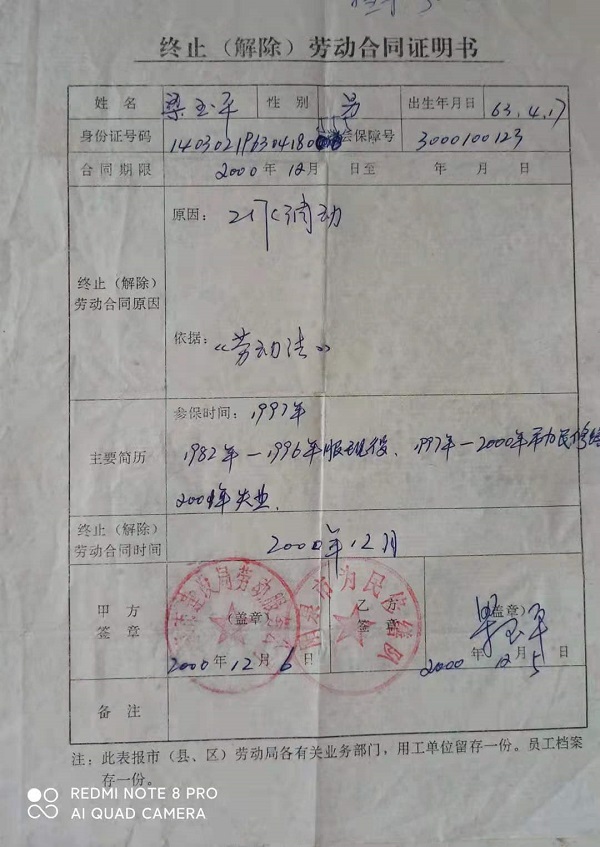 终止（解除）劳动合同证明书
姓名 梁玉平 性别 男 出生年月日 63.4.17
身份证号码 会保障号 3000100123
合同期限 2000年12月 日至 年 月 日
终止（解除）劳动合同原因
原因： 工作调动
依据：《劳动法》
主要简历
参保时间：1997年
1982年—1996年服现役、1997年—2000年 力民修缮
200 年失业.
终止（解除）劳动合同时间 2000年12月
甲方签章 （盖章） 2000年12月6日
劳动服
市力民修缮队
乙方签章 （盖章） 梁玉平 2000年12月5日
备注
注：此表报市（县、区）劳动局各有关业务部门，用工单位留存一份。员工档案
存一份。
REDMI NOTE 8 PRO
AI QUAD CAMERA